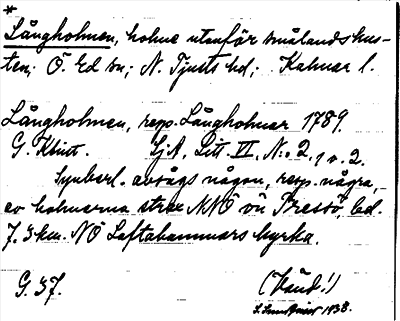 *
Långholmen, holme utanför smålandskus-
ten; Ö. Ed sn; N. Tjusts hd; Kalmar l.
Långholmen, resp. Långholmar 1789.
G. Klint. SjA, Litt. VI, N:o 2, 1 o. 2.
Synberl. avsågs någon, resp. några,
av holmarna strax NNO ön Bressö, bel.
7.5 km. NÖ Loftahammars kyrka.
G. 37. (Vänd!)
1938.